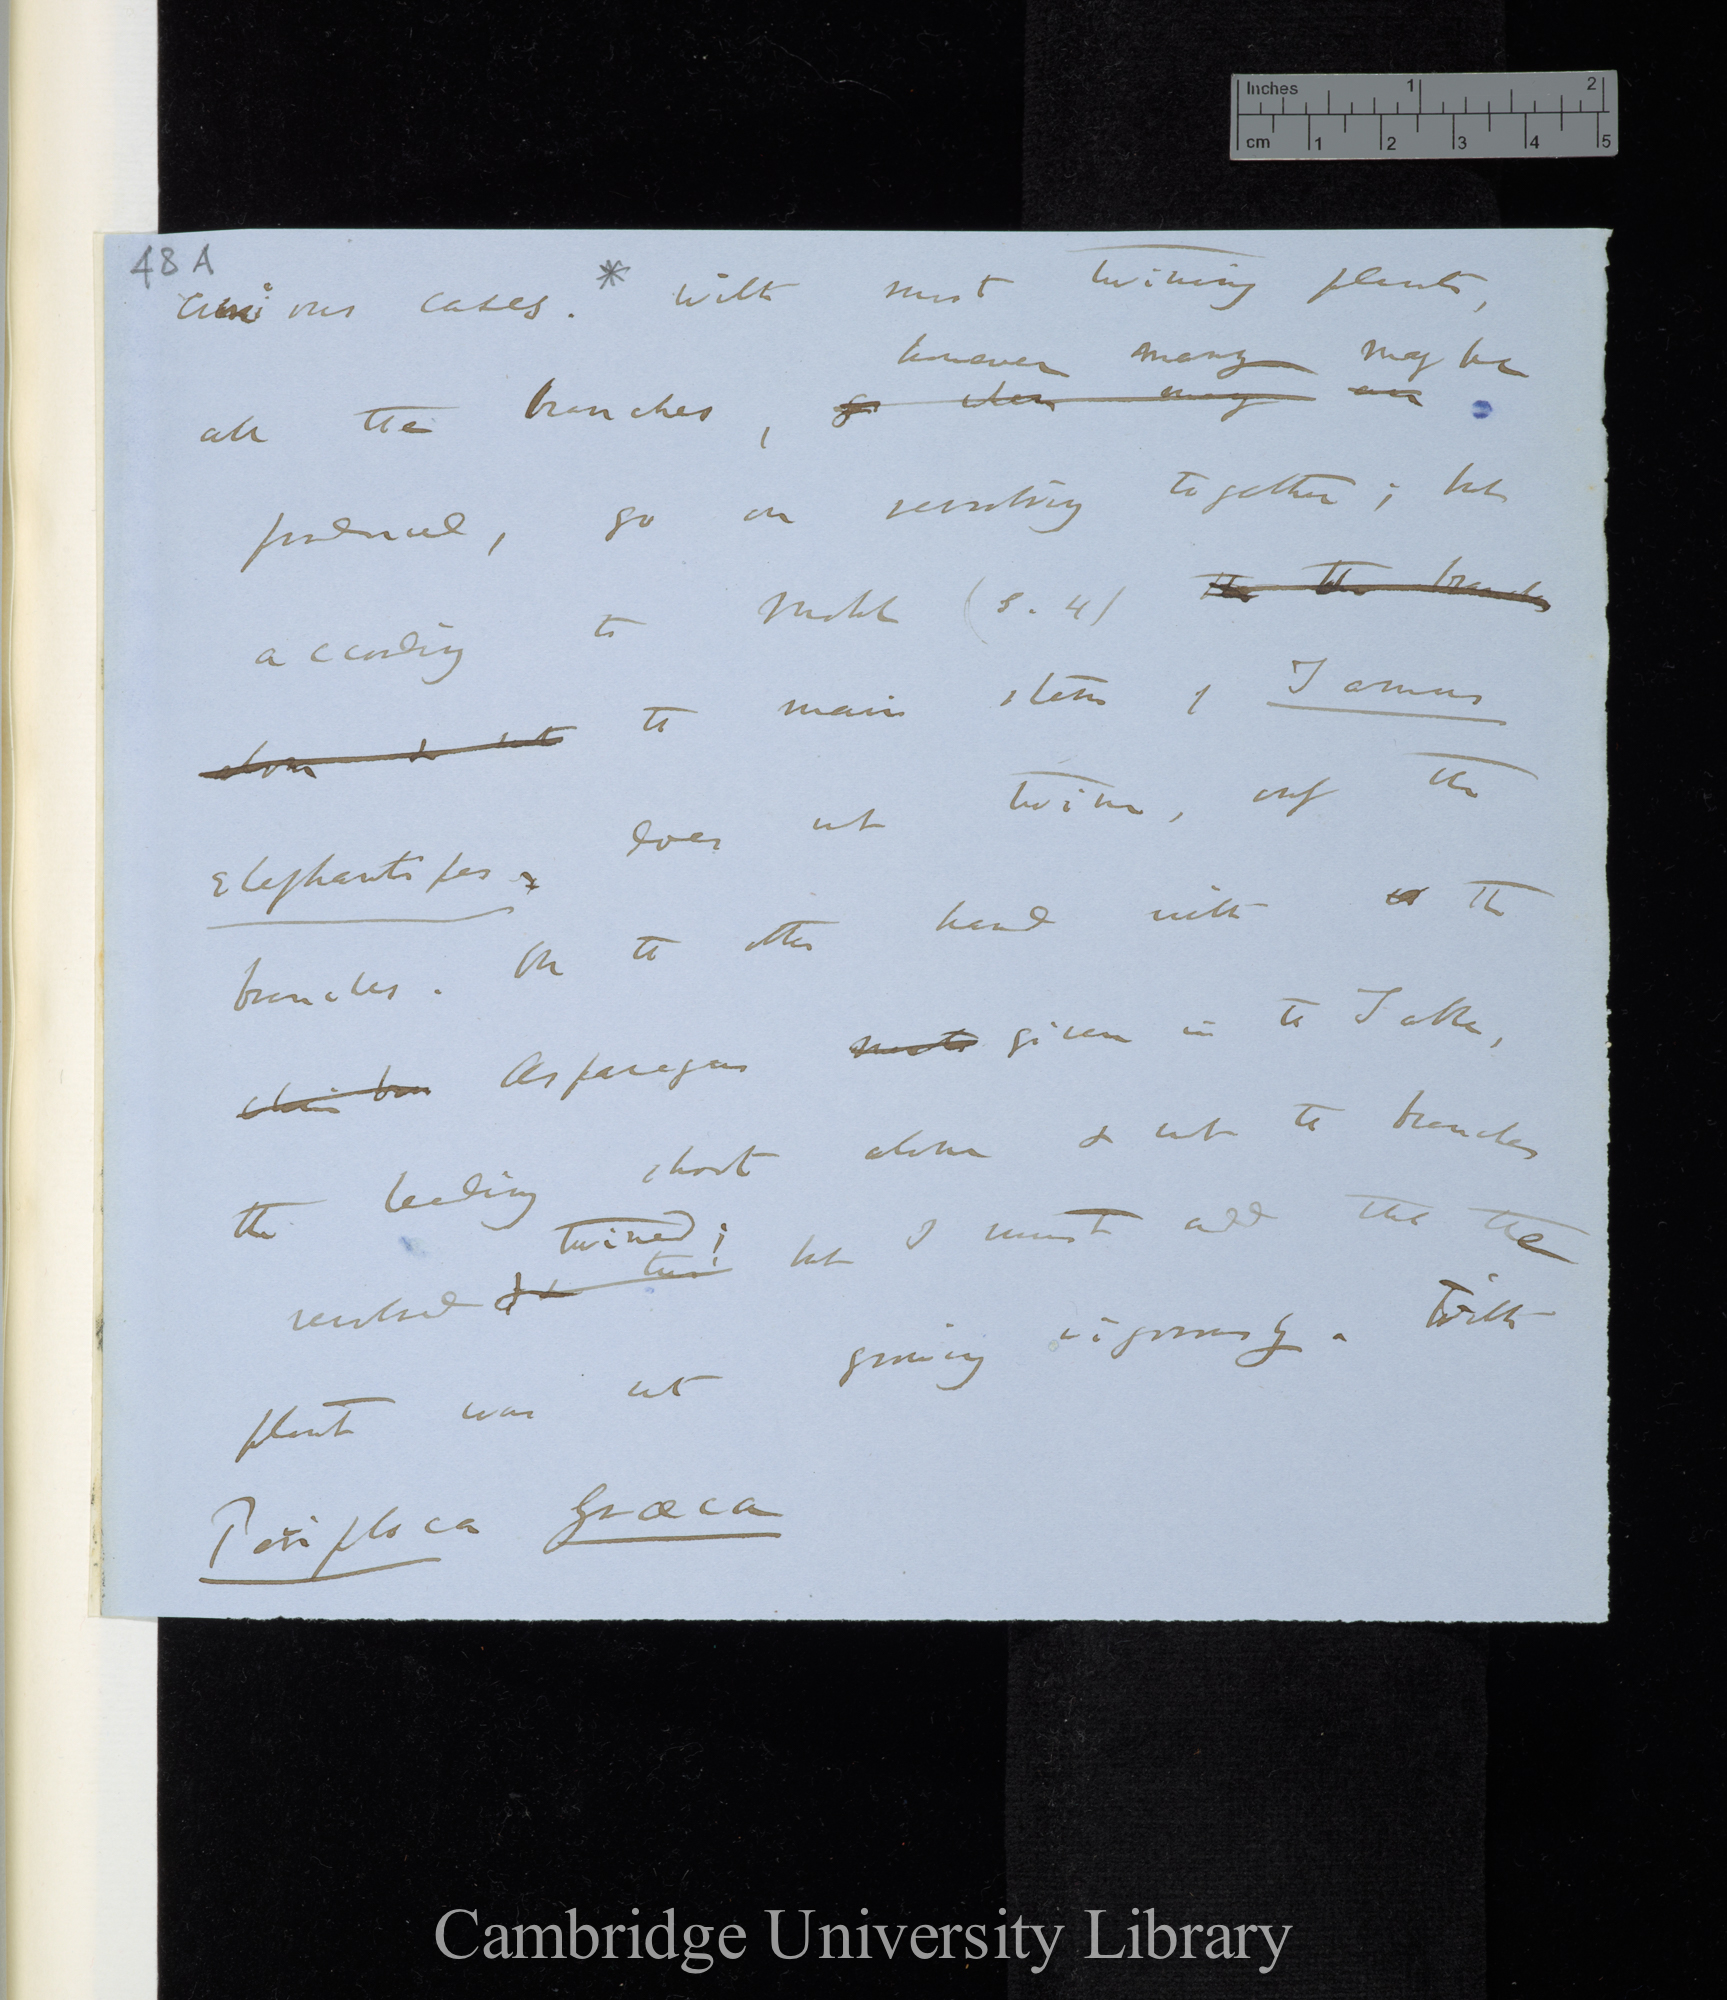 Inches 1 2
cm 1 2 3 4 5
48 A
curious cases. * With most twining plants,
however many may be
all the branches, go when many are
produced, go on revolving together; but
according to Mohl (s. 4) the the branches
alone & not the main stem of Tamus
Elephantipes does not twine, only the
branches. On the other hand with a the
climbing Asparagus given in the Table,
the leading shoot alone & not the branches
twined;
revolved & but I must add that the
plant was not growing vigorously. With
Periploca Græca
Cambridge University Library